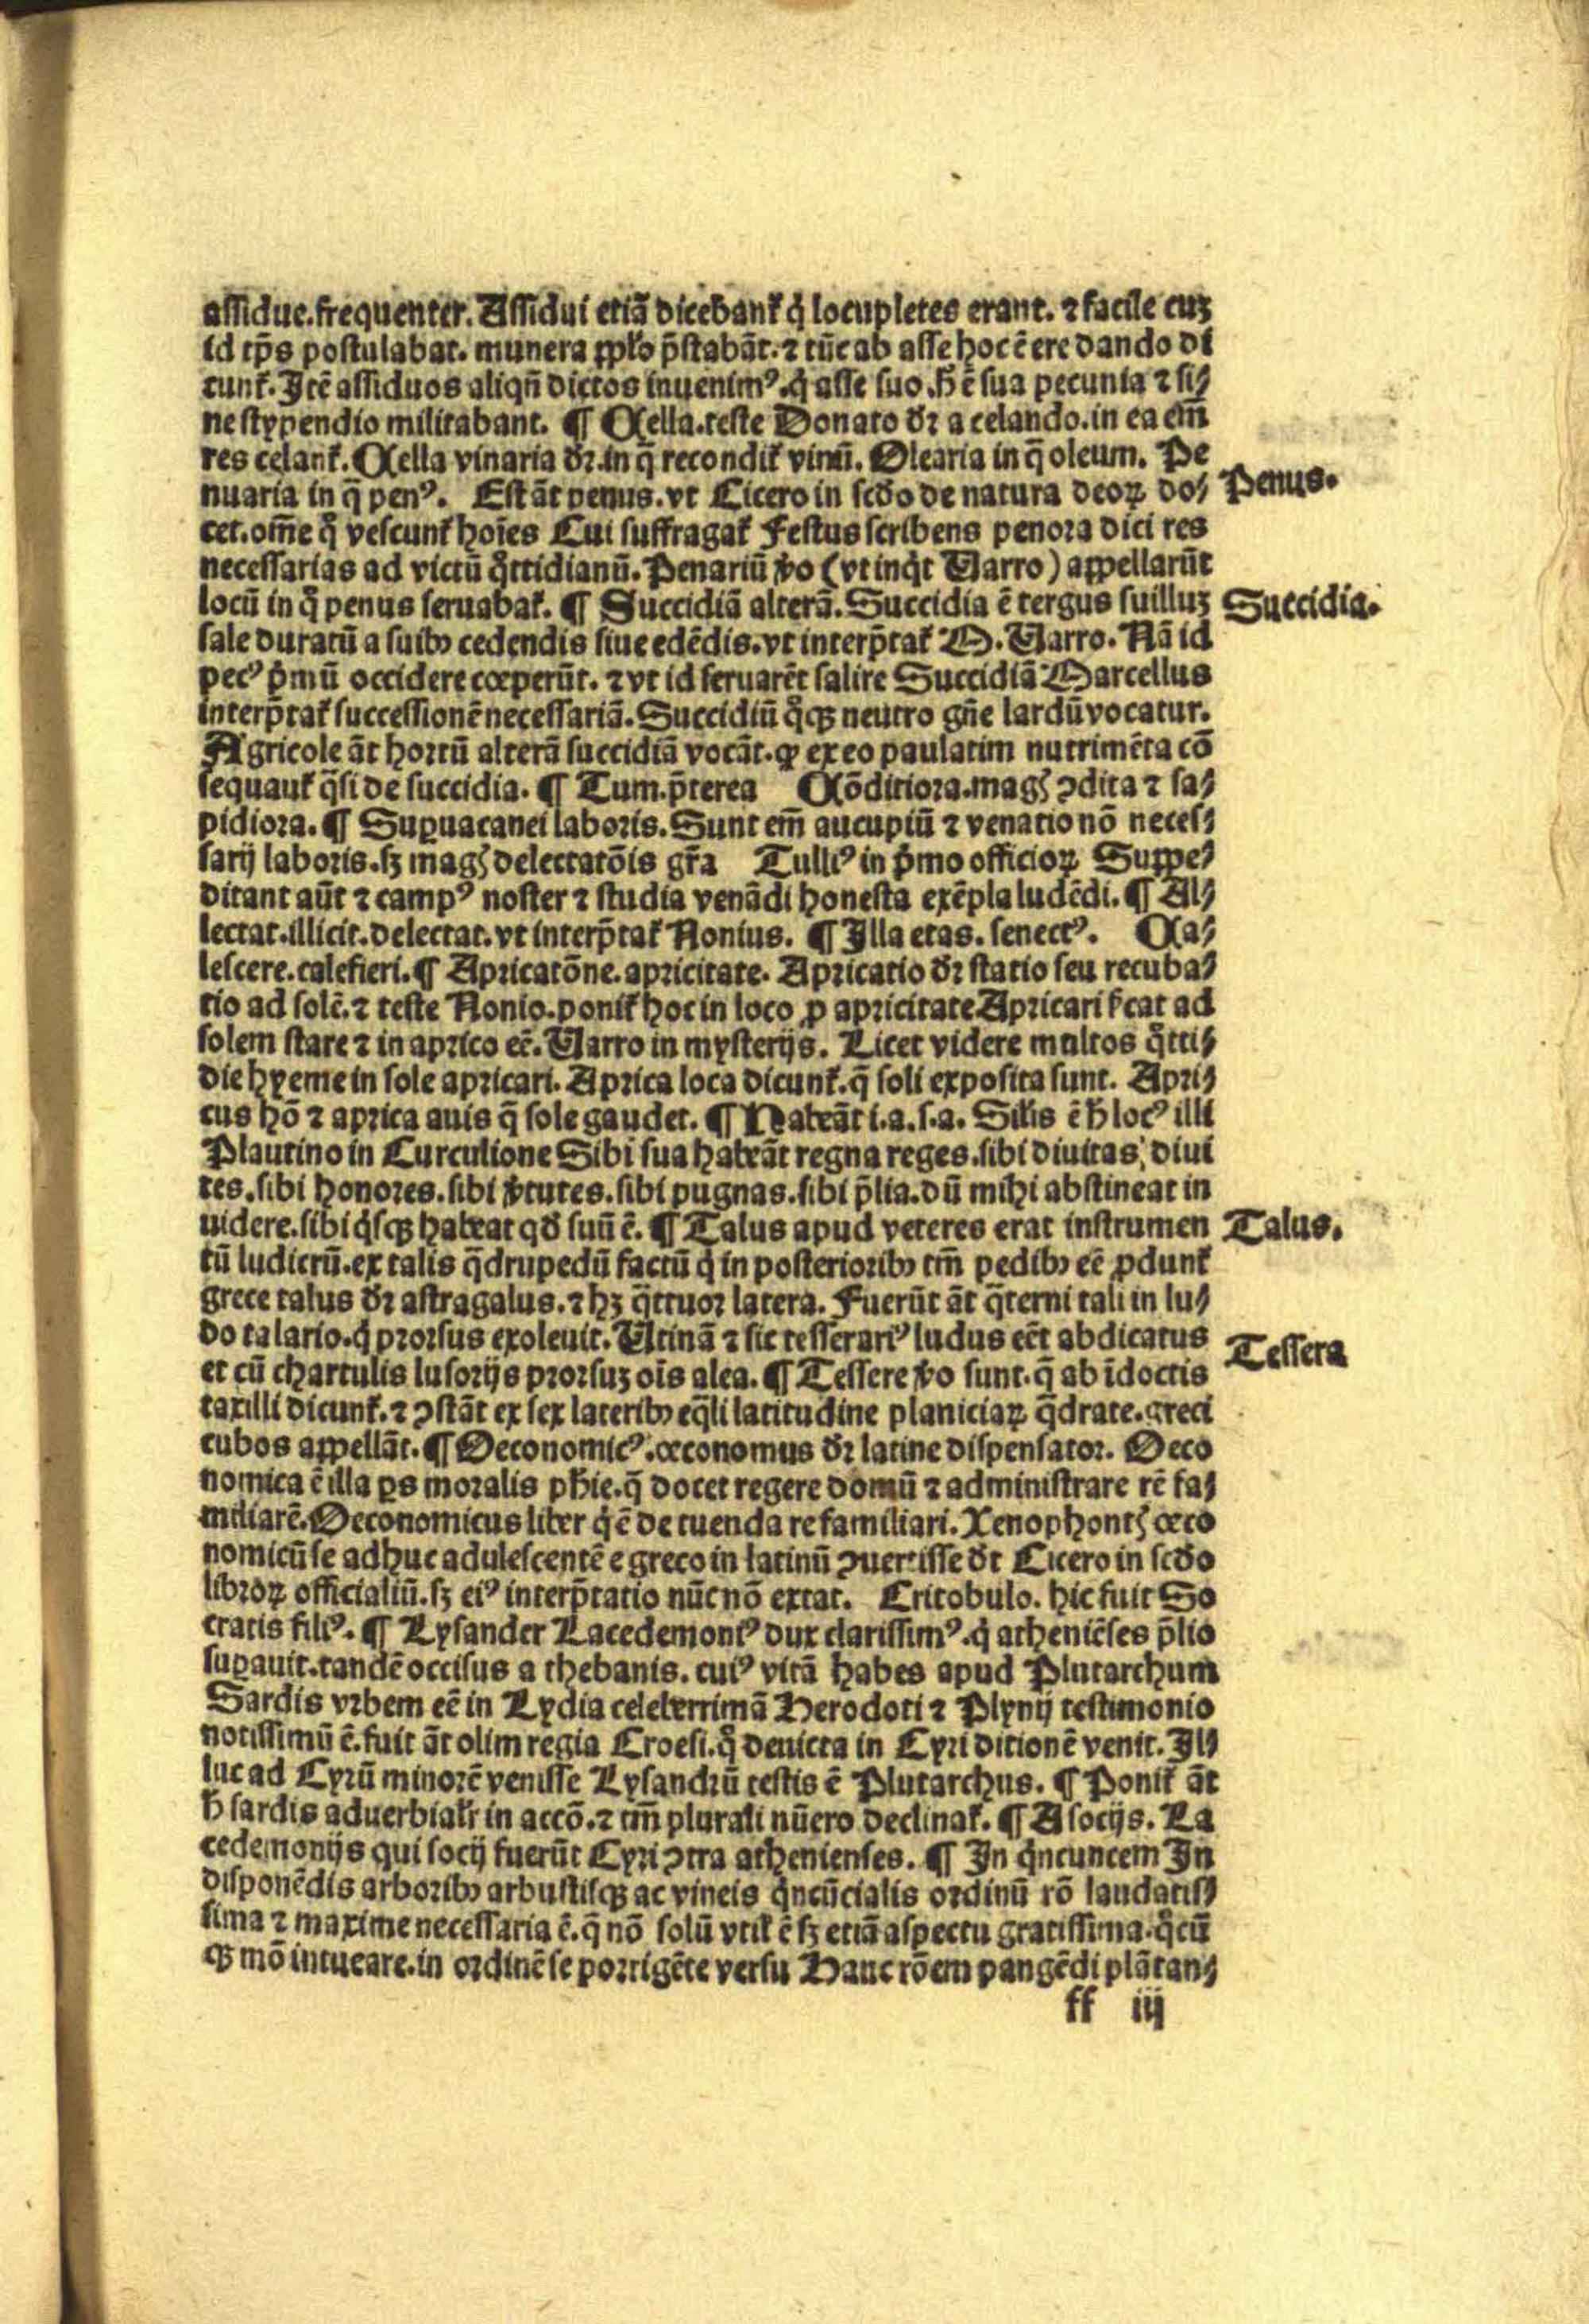 assidue.frequenter. Assidui etiā dicebant᷑ q̇ locupletes erant. ⁊ facile cuȝ
id tp̄s postulabat. munera ꝓpl̓o p̄stabāt. ⁊ tūc ab asse hoc ē ere dando di
cunt᷑. Itē assiduos aliqn̄ dictos inuenimꝰ. q̇ asse suo. h̄ ē sua pecunia ⁊ si⸗
ne stypendio militabant. ¶ Cella. teste Donato dr̄ a celando. in ea em̄
res celant᷑. Cella vinaria dr̄. in q̄ recondit᷑ vinū. Olearia in q̄ oleum. Pe
nuaria in q̄ penꝰ. Est āt penus. vt Cicero in scd̓o de natura deoꝝ do⸗
cet. om̄e q̊ vescunt᷑ hoīes Cui suffragat᷑ Festus scribens penora dici res
necessarias ad victū q̊ttidianū. Penariū v̓o (vt inq̇t Varro) appellarūt
locū in q̊ penus seruabat᷑. ¶ Succidiā alterā. Succidia ē tergus suilluȝ
sale duratū a suibꝫ cedendis siue edēdis. vt interp̄tat᷑ M. Varro. Nā id
pecꝰ p̓mū occidere cœperūt. ⁊ vt id seruarēt salire Succidiā Marcellus
interp̄tat᷑ successionē necessariā. Succidiū q̊qꝫ neutro gn̄e lardū vocatur.
Agricole āt hortū alterā succidiā vocāt. ꝙ ex eo paulatim nutrimēta cō
sequant᷑ q̄si de succidia. ¶ Tum. p̄terea Cōditiora. magꝭ ꝯdita ⁊ sa⸗
pidiora. ¶ Suꝑuacanei laboris. Sunt em̄ aucupiū ⁊ venatio nō neces⸗
sarij laboris. sꝫ magꝭ delectatōis gr̄a Tulliꝰ in p̓mo officioꝝ Suppe⸗
ditant aūt ⁊ campꝰ noster ⁊ studia venādi honesta exēpla ludēdi. ¶ Al⸗
lectat. illicit. delectat. vt interp̄tat᷑ Nonius. ¶ Illa etas. senectꝰ. Ca⸗
lescere. calefieri. ¶ Apricatōne. apricitate. Apricatio dr̄ statio seu recuba⸗
tio ad solē. ⁊ teste Nonio. ponit᷑ hoc in loco ꝓ apricitate Apricari s̓cat ad
solem stare ⁊ in aprico eē. Varro in mysterijs. Licet videre multos q̊tti⸗
die hyeme in sole apricari. Aprica loca dicunt᷑. q̄ soli exposita sunt. Apri⸗
cus hō ⁊ aprica auis q̄ sole gaudet. ¶ Habeāt i.a.s.a. Sil̓is ē h̄ locꝰ illi
Plautino in Curculione Sibi sua habeāt regna reges. sibi diuitas, diui
tes. sibi honores. sibi v̓tutes. sibi pugnas. sibi p̄lia. dū mihi abstineat in
uidere. sibi q̇sqꝫ habeat qd̓ suū ē. ¶ Talus apud veteres erat instrumen
tū ludicrū. ex talis q̄drupedū factū q̇ in posterioribꝫ tm̄ pedibꝫ eē ꝓdunt᷑
grece talus dr̄ astragalus. ⁊ hꝫ q̄ttuor latera. Fuerūt āt q̄terni tali in lu⸗
do talario. q̇ prorsus exoleuit. Vtinā ⁊ sic tesserariꝰ ludus eēt abdicatus
et cū chartulis lusorijs prorsuȝ oīs alea. ¶ Tessere v̓o sunt. q̄ ab īdoctis
taxilli dicunt᷑. ⁊ ꝯstāt ex sex lateribꝫ eq̄li latitudine planiciaꝝ q̄drate. greci
cubos appellāt. ¶ Oeconomicꝰ. œconomus dr̄ latine dispensator. Oeco
nomica ē illa ꝑs moralis ph̄ie. q̄ docet regere domū ⁊ administrare rē fa⸗
miliarē. Oeconomicus liber q̇ ē de tuenda re familiari. Xenophontꝭ œco
nomicū se adhuc adulescentē e greco in latinū ꝯuertisse dt̄ Cicero in scd̓o
libroꝝ officialiū. sꝫ eiꝰ interp̄tatio nūc nō extat. Critobulo. hic fuit So
cratis filiꝰ. ¶ Lysander Lacedemoniꝰ dux clarissimꝰ. q̇ atheniēses p̄lio
suꝑauit. tandē occisus a thebanis. cuiꝰ vitā habes apud Plutarchum
Sardis vrbem eē in Lydia celeberrimā Herodoti ⁊ Plynij testimonio
notissimū ē. fuit āt olim regia Croesi. q̊ deuicta in Cyri ditionē venit. Il⸗
luc ad Cyrū minorē venisse Lysandrū testis ē Plutarchus. ¶ Ponit᷑ āt
h̄ sardis aduerbialr̓ in accō. ⁊ tm̄ plurali nūero declinat᷑. ¶ A socijs. La
cedemonijs qui socij fuerūt Cyri ꝯtra athenienses. ¶ In q̇ncuncem In
disponēdis arboribꝫ arbustisqꝫ ac vineis q̇ncūcialis ordinū rō laudatis⸗
sima ⁊ maxime necessaria ē. q̄ nō solū vtil̓ ē sꝫ etiā aspectu gratissima. q̊cū
qꝫ mō intueare. in ordinē se porrigēte versu Hanc rōem pangēdi plātan⸗
ff iij
Penus.
Succidia.
Talus.
Tessera